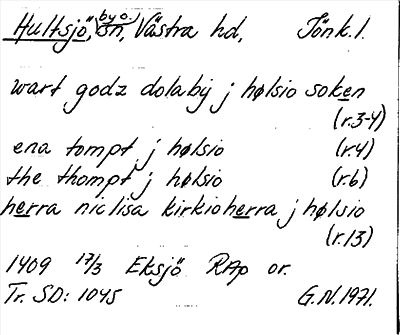 Hultsjö, by o. sn, Västra hd, Jönk. l.
wart godz dolabij j hølsio soken
(r.3-4)
ena tompt j hølsio (r.4)
the thompt j hølsio (r.6)
herra niclisa kirkioherra j hølsio
(r.13)
1409 17/3 Eksjö RAp or.
Tr. SD: 1045 G.N. 1971.